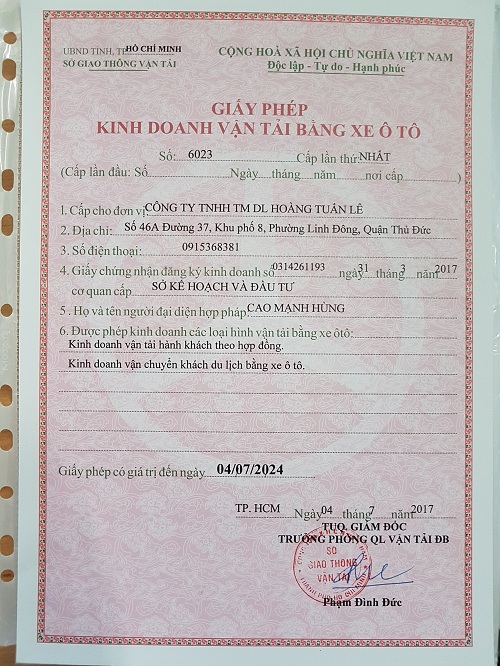 UBND TỈNH, TP HỒ CHÍ MINH
SỞ GIAO THÔNG VẬN TẢI
CỘNG HOÀ XÃ HỘI CHỦ NGHĨA VIỆT NAM
Độc lập - Tự do - Hạnh phúc
GIẤY PHÉP
KINH DOANH VẬN TẢI BẰNG XE Ô TÔ
Số: 6023 Cấp lần thứ NHẤT
(Cấp lần đầu: Số Ngày tháng năm nơi cấp )
1. Cấp cho đơn vị: CÔNG TY TNHH TM DL HOÀNG TUẤN LÊ
2. Địa chỉ: Số 46A Đường 37, Khu phố 8, Phường Linh Đông, Quận Thủ Đức
3. Số điện thoại: 0915368381
4. Giấy chứng nhận đăng ký kinh doanh số 0314261193 ngày 31 tháng 3 năm 2017
cơ quan cấp SỞ KẾ HOẠCH VÀ ĐẦU TƯ
5. Họ và tên người đại diện hợp pháp: CAO MẠNH HÙNG
6. Được phép kinh doanh các loại hình vận tải bằng xe ôtô:
Kinh doanh vận tải hành khách theo hợp đồng.
Kinh doanh vận chuyển khách du lịch bằng xe ô tô.
Giấy phép có giá trị đến ngày 04/07/2024
TP. HCM Ngày 04 tháng 7 năm 2017
TUQ. GIÁM ĐỐC
TRƯỞNG PHÒNG QL VẬN TẢI ĐB
SỞ
GIAO THÔNG
VẬN TẢI
Phạm Đình Đức